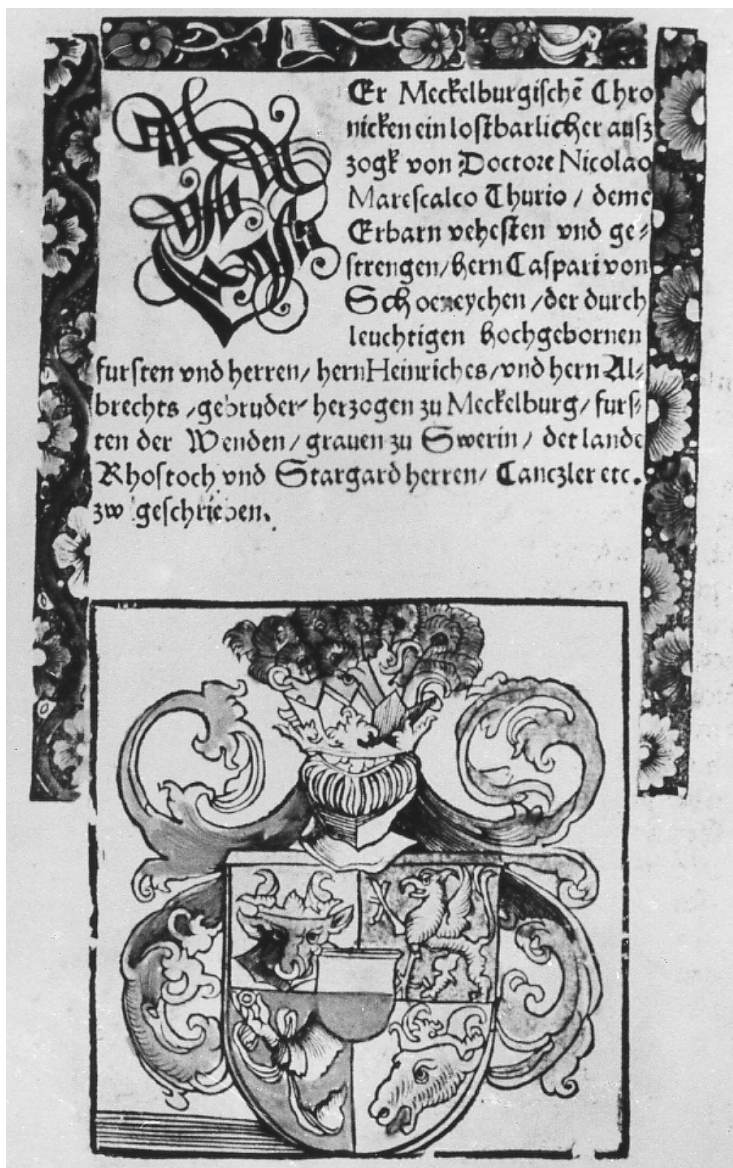 Er Meckelburgischē Chro
nicken ein lostbarlicher ausz
zogk von Doctore Nicolao
Marescalco Thurio / deme
Erbarn vehesten vnd ge⸗
strengen / hern Caspari von
Schoeneychen / der durch
leuchtigen hochgebornen
fursten vnd herren / hern Heinriches / vnd hern Al⸗
brechts / gebruder herzogen zu Meckelburg / furs⸗
ten der Wenden / graven zu Swerin / der lande
Rhostoch vnd Stargard herren / Canczler etc.
zw geschrieben.